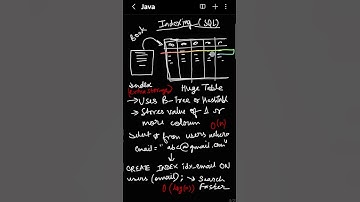 Java
Indexing (SQL)
Book
Index
(extra storage)
Huge Table
→ Uses B-Tree or Hashtable
→ Stores value of 1 or more column
O(n)
select * from users where
email = "abc@gmail.com"
CREATE INDEX idx-email ON
users (email); → Search
Faster
O(log(n))